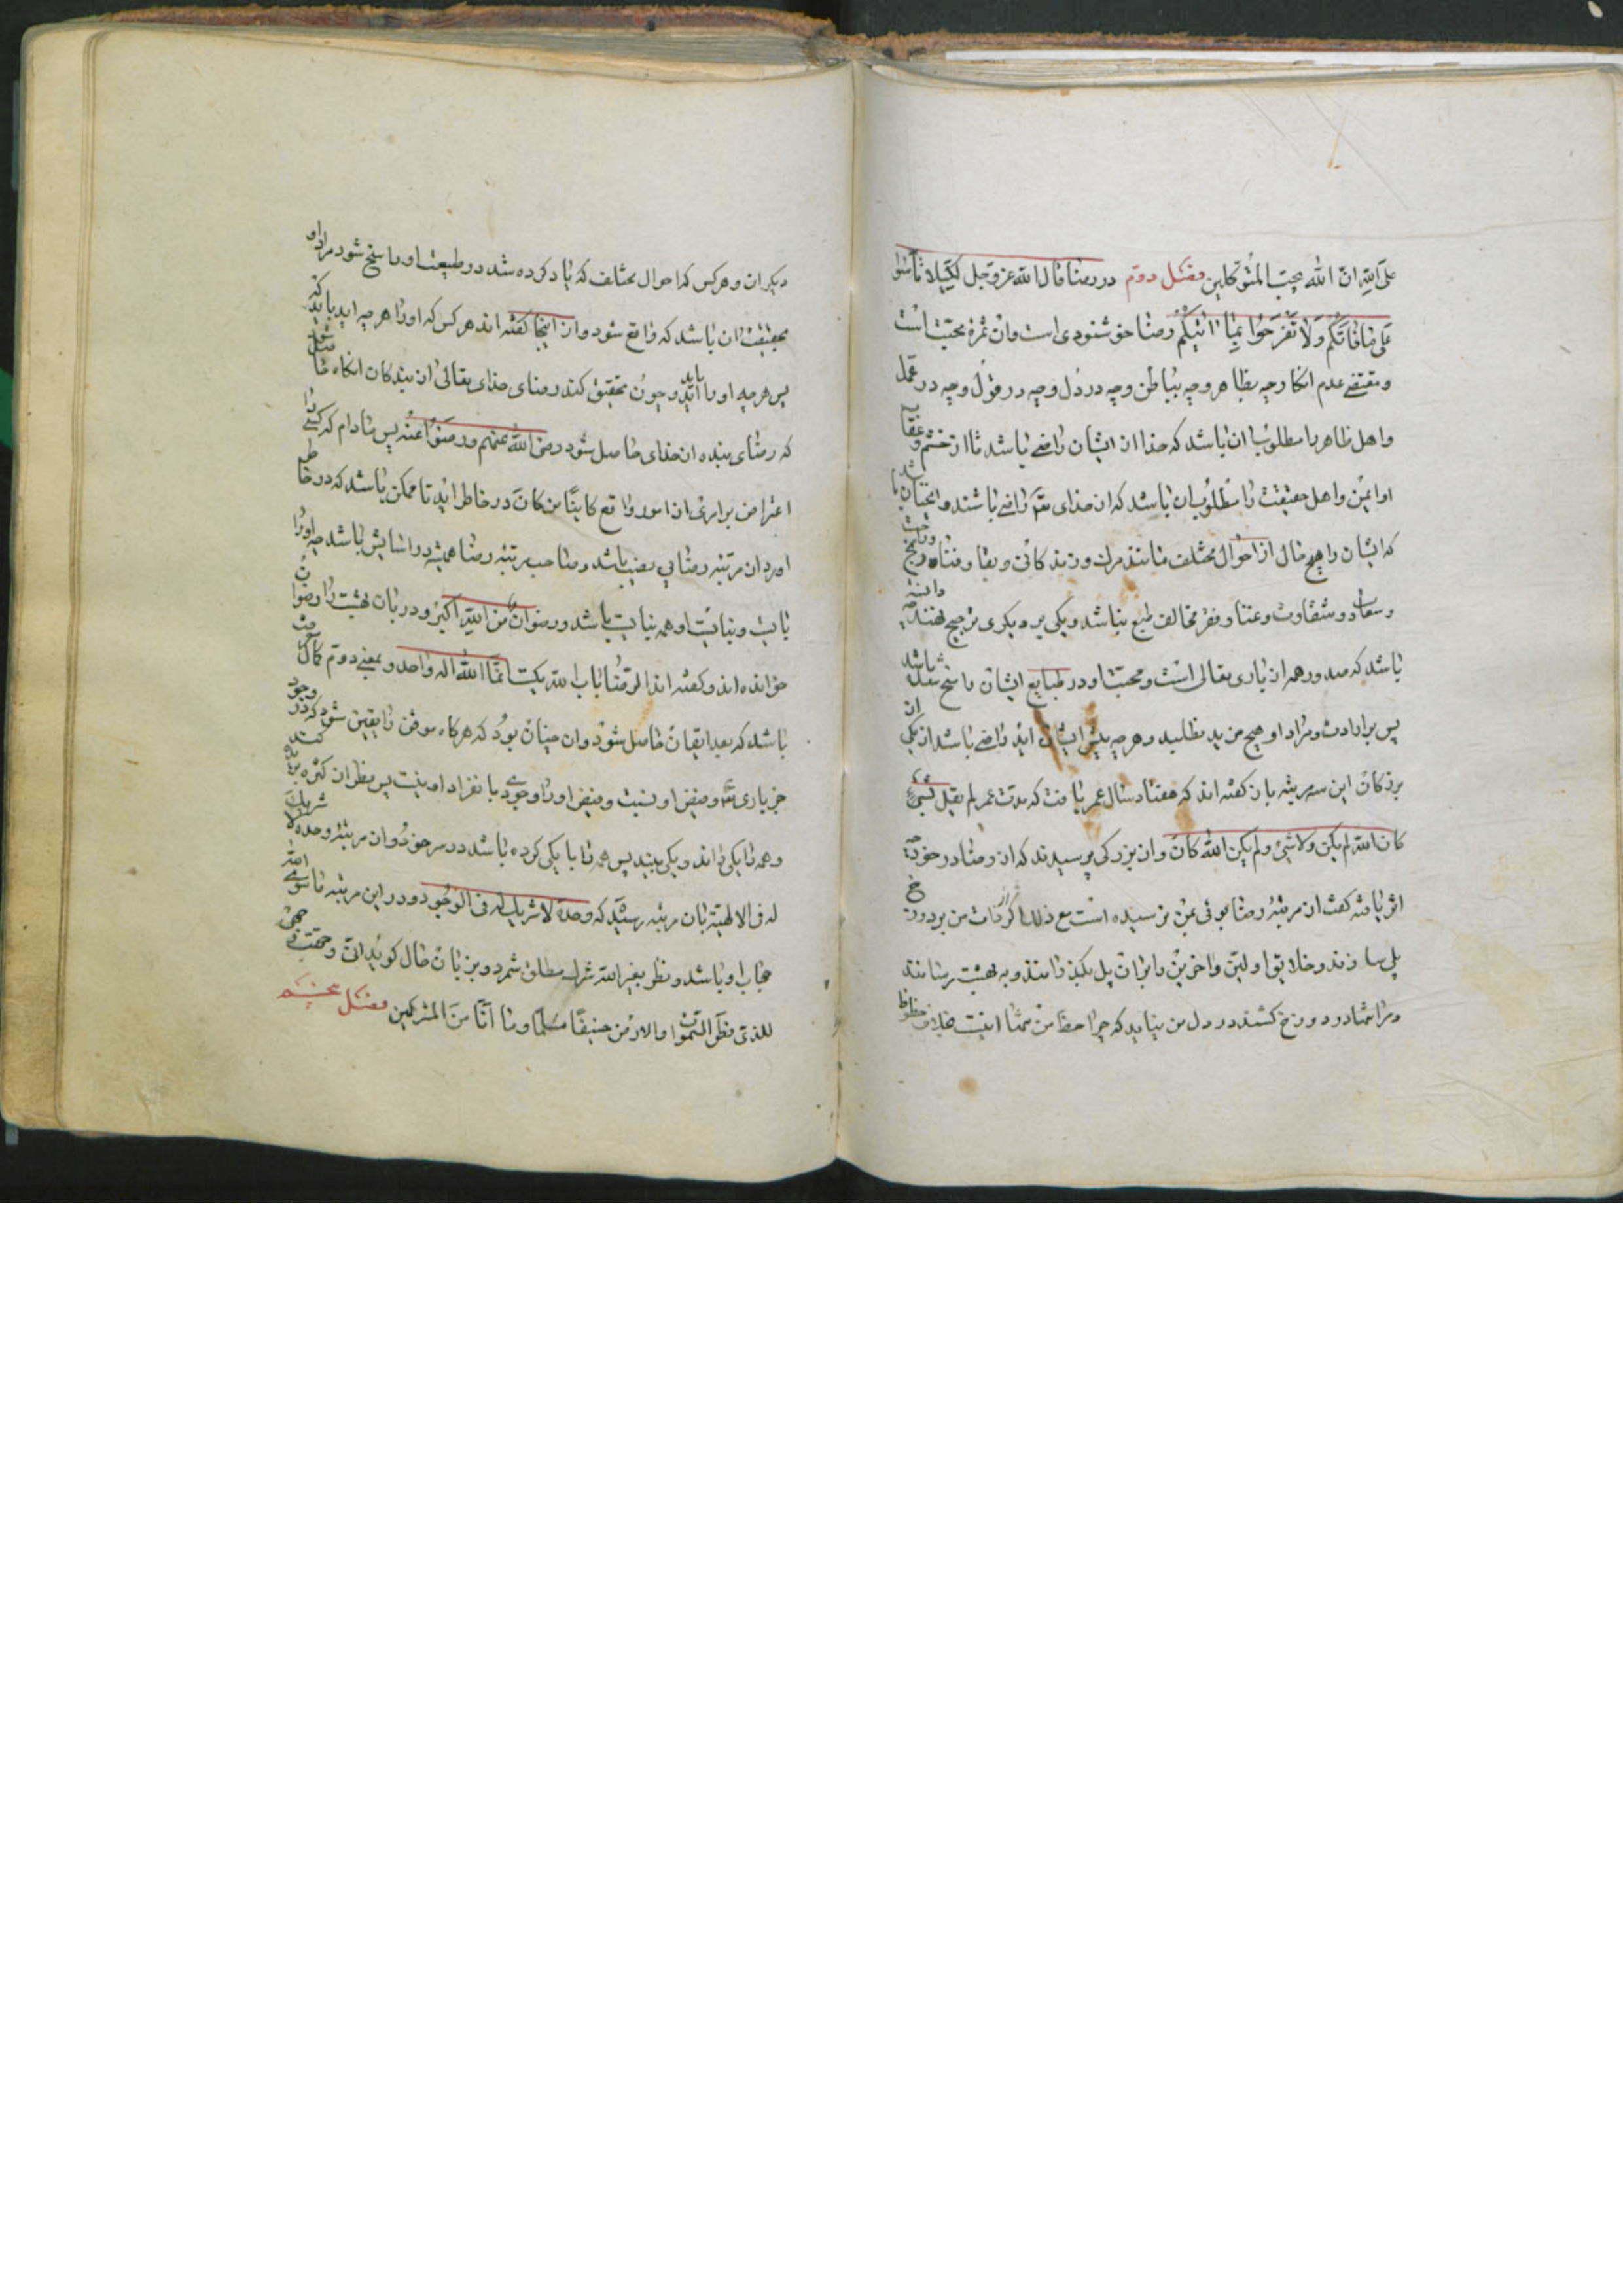 علی الله ان الله یحب المتوکلین فصل دوم در رضا قال الله عز و جل لکیلا تاسوا
علی ما فاتکم ولا تفرحوا بما اتیکم رضا خوشنودی است وان ثمره محبت است
ومقتضی عدم انکار چه بظاهر وچه بباطن وچه در دل وچه در قول وچه در عمل
واهل ظاهر را مطلوب ان باشد که خدا از ایشان راضی باشد تا از خشم وعقاب
او ایمن واهل حقیقت را مطلوب ان باشد که از خدای تعالی راضی باشند وانچنان باشد
که ایشان را هیچ حال از احوال مختلف مانند مرک وزندکانی وبقا وفنا ورنج وراحت
وسعادت وشقاوت وغنا وفقر مخالف طبع نباشد ویکی بر دیکری ترجیح ننهند چه دانسته
باشد که صدور همه از باری تعالی است ومحبت او در طبایع ایشان راسخ شده باشد
پس بر ارادت ومراد او هیچ مزید نطلبند وهرچه پیش ایشان اید راضی باشند از یکی از
بزرکان این مرتبه باز کفته اند که هفتاد سال عمر یافت که مدت عمر لم یقل لشیء
کان لیته لم یکن ولا لشیء لم یکن لیته کان وان بزرکی پرسیدند که از رضا در خود چه
اثر یافته کفت از مرتبه رضا بوئی بمن نرسیده است مع ذلک اکر از ذات من بر دوزخ
پل سازند وخلایق اولین واخرین را بران پل بکذرانند وبه بهشت رسانند
ومرا تنها در دوزخ کشند در دل من نیاید که چرا حظ من تنها اینست خلاف حظوظ
دیکران وهر کس که احوال مختلف که یاد کرده شد در طبیعت او راسخ شود مراد او
بحقیقت ان باشد که واقع شود واز اینجا کفته اند هر کس که اورا هر چه اید باید
پس هرچه اورا باید اید وچون تحقیق کند رضای خدای تعالی از بندکان انکاه حاصل شود
که رضای بنده از خدای حاصل شود رضی الله عنهم ورضوا عنه پس مادام که کسی را
اعتراض بر امری از امور واقع کاینا من کان در خاطر اید تا ممکن باشد که در خاطر
اورد از مرتبه رضا بی نصیب باشد وصاحب مرتبه رضا همیشه در اسایش باشد چه اورا
بایست ونبایست او همه بایست باشد ورضوان من الله اکبر ودربان بهشت را رضوان
خوانده اند وکفته اند الرضا باب الله یکتا انما الله اله واحد وبمعنی دوم کمال
باشد که بعد ایقان حاصل شود وان چنان بود که هرکاه موقن را یقین شود که در وجود
جز باری تعالی وفیض او نیست وفیض اورا وجودی بانفراد او نیست پس نظر از کثرت بریده کند
وهمه را یکی داند ویکی بیند پس همه را با یکی کرده باشد در سر خود وان مرتبه وحده لا شریک
له فی الالهیة بان مرتبه رسید که وحده لا شریک له فی الوجود ودر این مرتبه ماسوی الله
حجاب او باشد ونظر بغیر الله شرک مطلق شمرد وبزبان حال کوید انی وجهت وجهی
للذی فطر السموات والارض حنیفا مسلما وما انا من المشرکین فصل پنجم